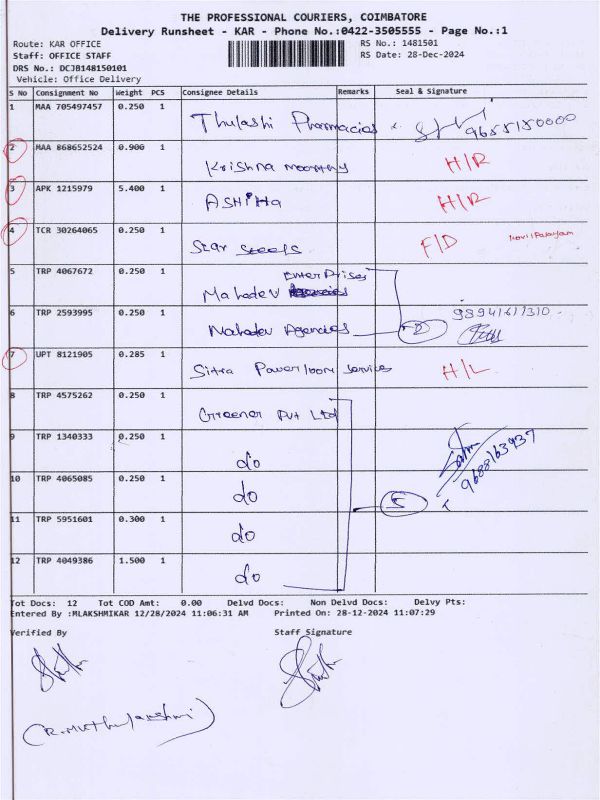 THE PROFESSIONAL COURIERS, COIMBATORE
Delivery Runsheet - KAR - Phone No.:0422-3505555 - Page No.:1
Route: KAR OFFICE
Staff: OFFICE STAFF
DRS No.: DCJB148150101
Vehicle: Office Delivery
RS No.: 1481501
RS Date: 28-Dec-2024
S No Consignment No Weight PCS Consignee Details Remarks Seal & Signature
1 MAA 705497457 0.250 1 Thulashi Pharmacies 9655150000
2 MAA 868652524 0.900 1 Krishna moorthy H/R
3 APK 1215979 5.400 1 ASHIHa H/R
4 TCR 30264065 0.250 1 Star F/D
5 TRP 4067672 0.250 1 Mahadev Enterprises
6 TRP 2593995 0.250 1 Mahadev Agencies 2
7 UPT 8121905 0.285 1 Sitra Powerloom Services H/L
8 TRP 4575262 0.250 1 Greener Pvt Ltd
9 TRP 1340333 0.250 1 do 9688163937
10 TRP 4065085 0.250 1 do 5
11 TRP 5951601 0.300 1 do
12 TRP 4049386 1.500 1 do
Tot Docs: 12 Tot COD Amt: 0.00 Delvd Docs: Non Delvd Docs: Delvy Pts:
Entered By :MLAKSHMIKAR 12/28/2024 11:06:31 AM Printed On: 28-12-2024 11:07:29
Verified By Staff Signature
(R.Muthulakshmi)